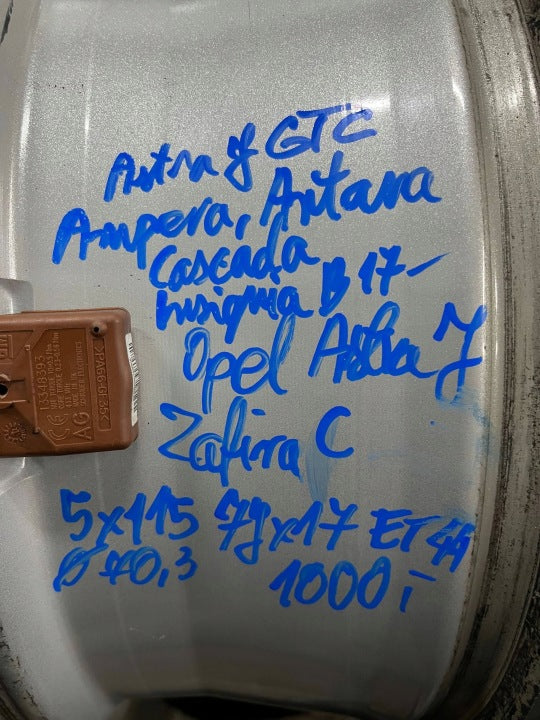 Astra J GTC
Ampera, Antara
Cascada
Insignia B 17-
Opel Astra J
Zafira C
5x115 7Jx17 ET44
Ø 70,3 1000,-
13348393
CE
AG